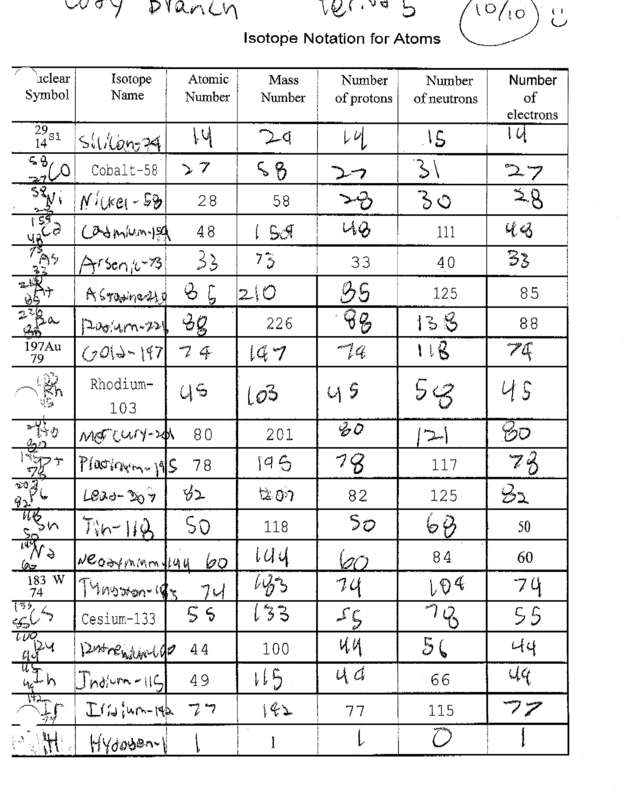 Cody Branch Period 5 10/10
Isotope Notation for Atoms
Nuclear Symbol Isotope Name Atomic Number Mass Number Number of protons Number of neutrons Number of electrons
29 14 Si Silicon-29 14 29 14 15 14
58 27 Co Cobalt-58 27 58 27 31 27
58 28 Ni Nickel-58 28 58 28 30 28
159 48 Cd Cadmium-159 48 159 48 111 48
73 33 As Arsenic-73 33 73 33 40 33
210 85 At Astatine-210 85 210 85 125 85
226 88 Ra Radium-226 88 226 88 138 88
197Au 79 Gold-197 79 197 79 118 79
103 45 Rh Rhodium-103 45 103 45 58 45
201 80 Hg Mercury-201 80 201 80 121 80
195 78 Pt Platinum-195 78 195 78 117 78
207 82 Pb Lead-207 82 207 82 125 82
118 50 Sn Tin-118 50 118 50 68 50
144 60 Nd Neodymium-144 60 144 60 84 60
183 W 74 Tungsten-183 74 183 74 109 74
133 55 Cs Cesium-133 55 133 55 78 55
100 44 Ru 44 100 44 56 44
115 49 In Indium-115 49 115 49 66 49
192 77 Ir Iridium-192 77 192 77 115 77
H Hydogen-1 1 1 1 0 1